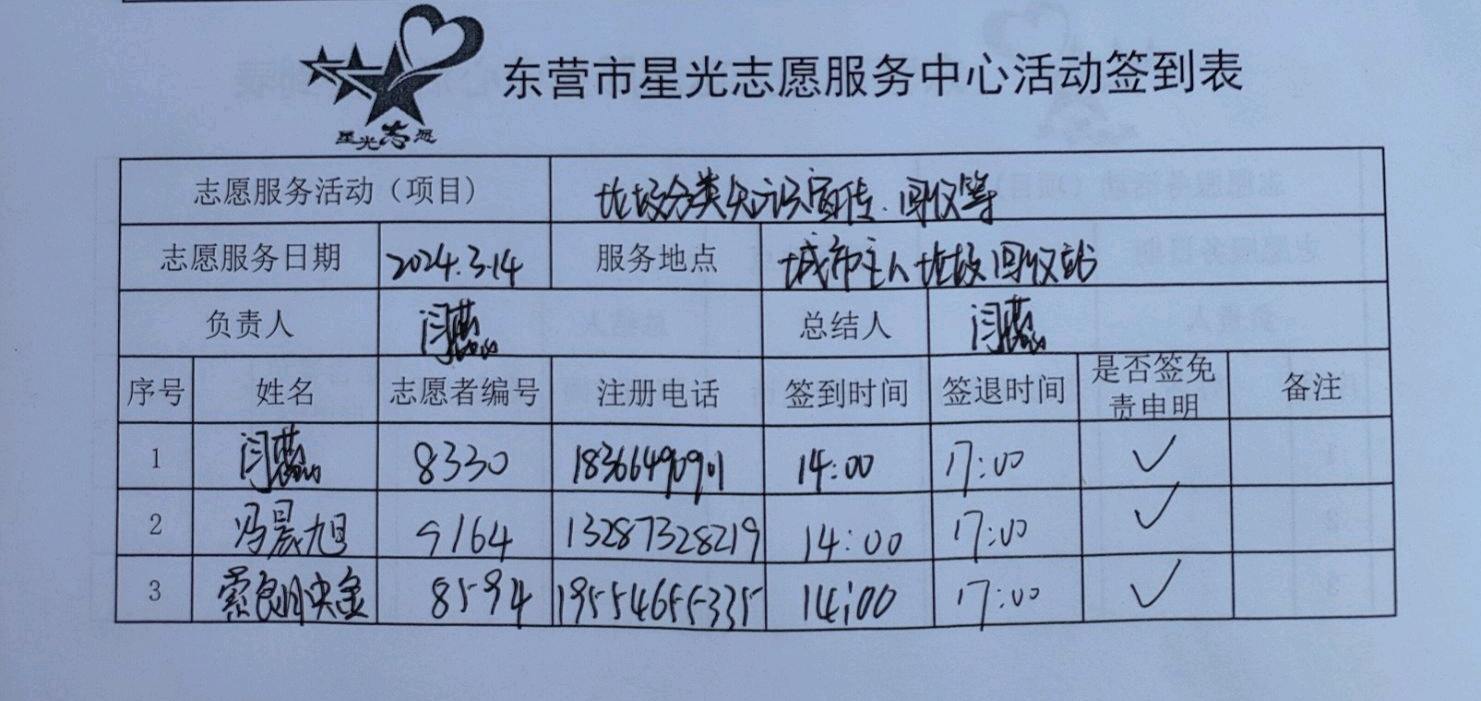 星光志愿
东营市星光志愿服务中心活动签到表
志愿服务活动（项目） 垃圾分类知识宣传、回收等
志愿服务日期 2024.3.14 服务地点 城市主人垃圾回收站
负责人 闫燕 总结人 闫燕
序号 姓名 志愿者编号 注册电话 签到时间 签退时间 是否签免责申明 备注
1 闫燕 8330 18366490901 14:00 17:00 ✓
2 冯晨旭 9164 13287328219 14:00 17:00 ✓
3 索朗央金 8594 19554655335 14:00 17:00 ✓